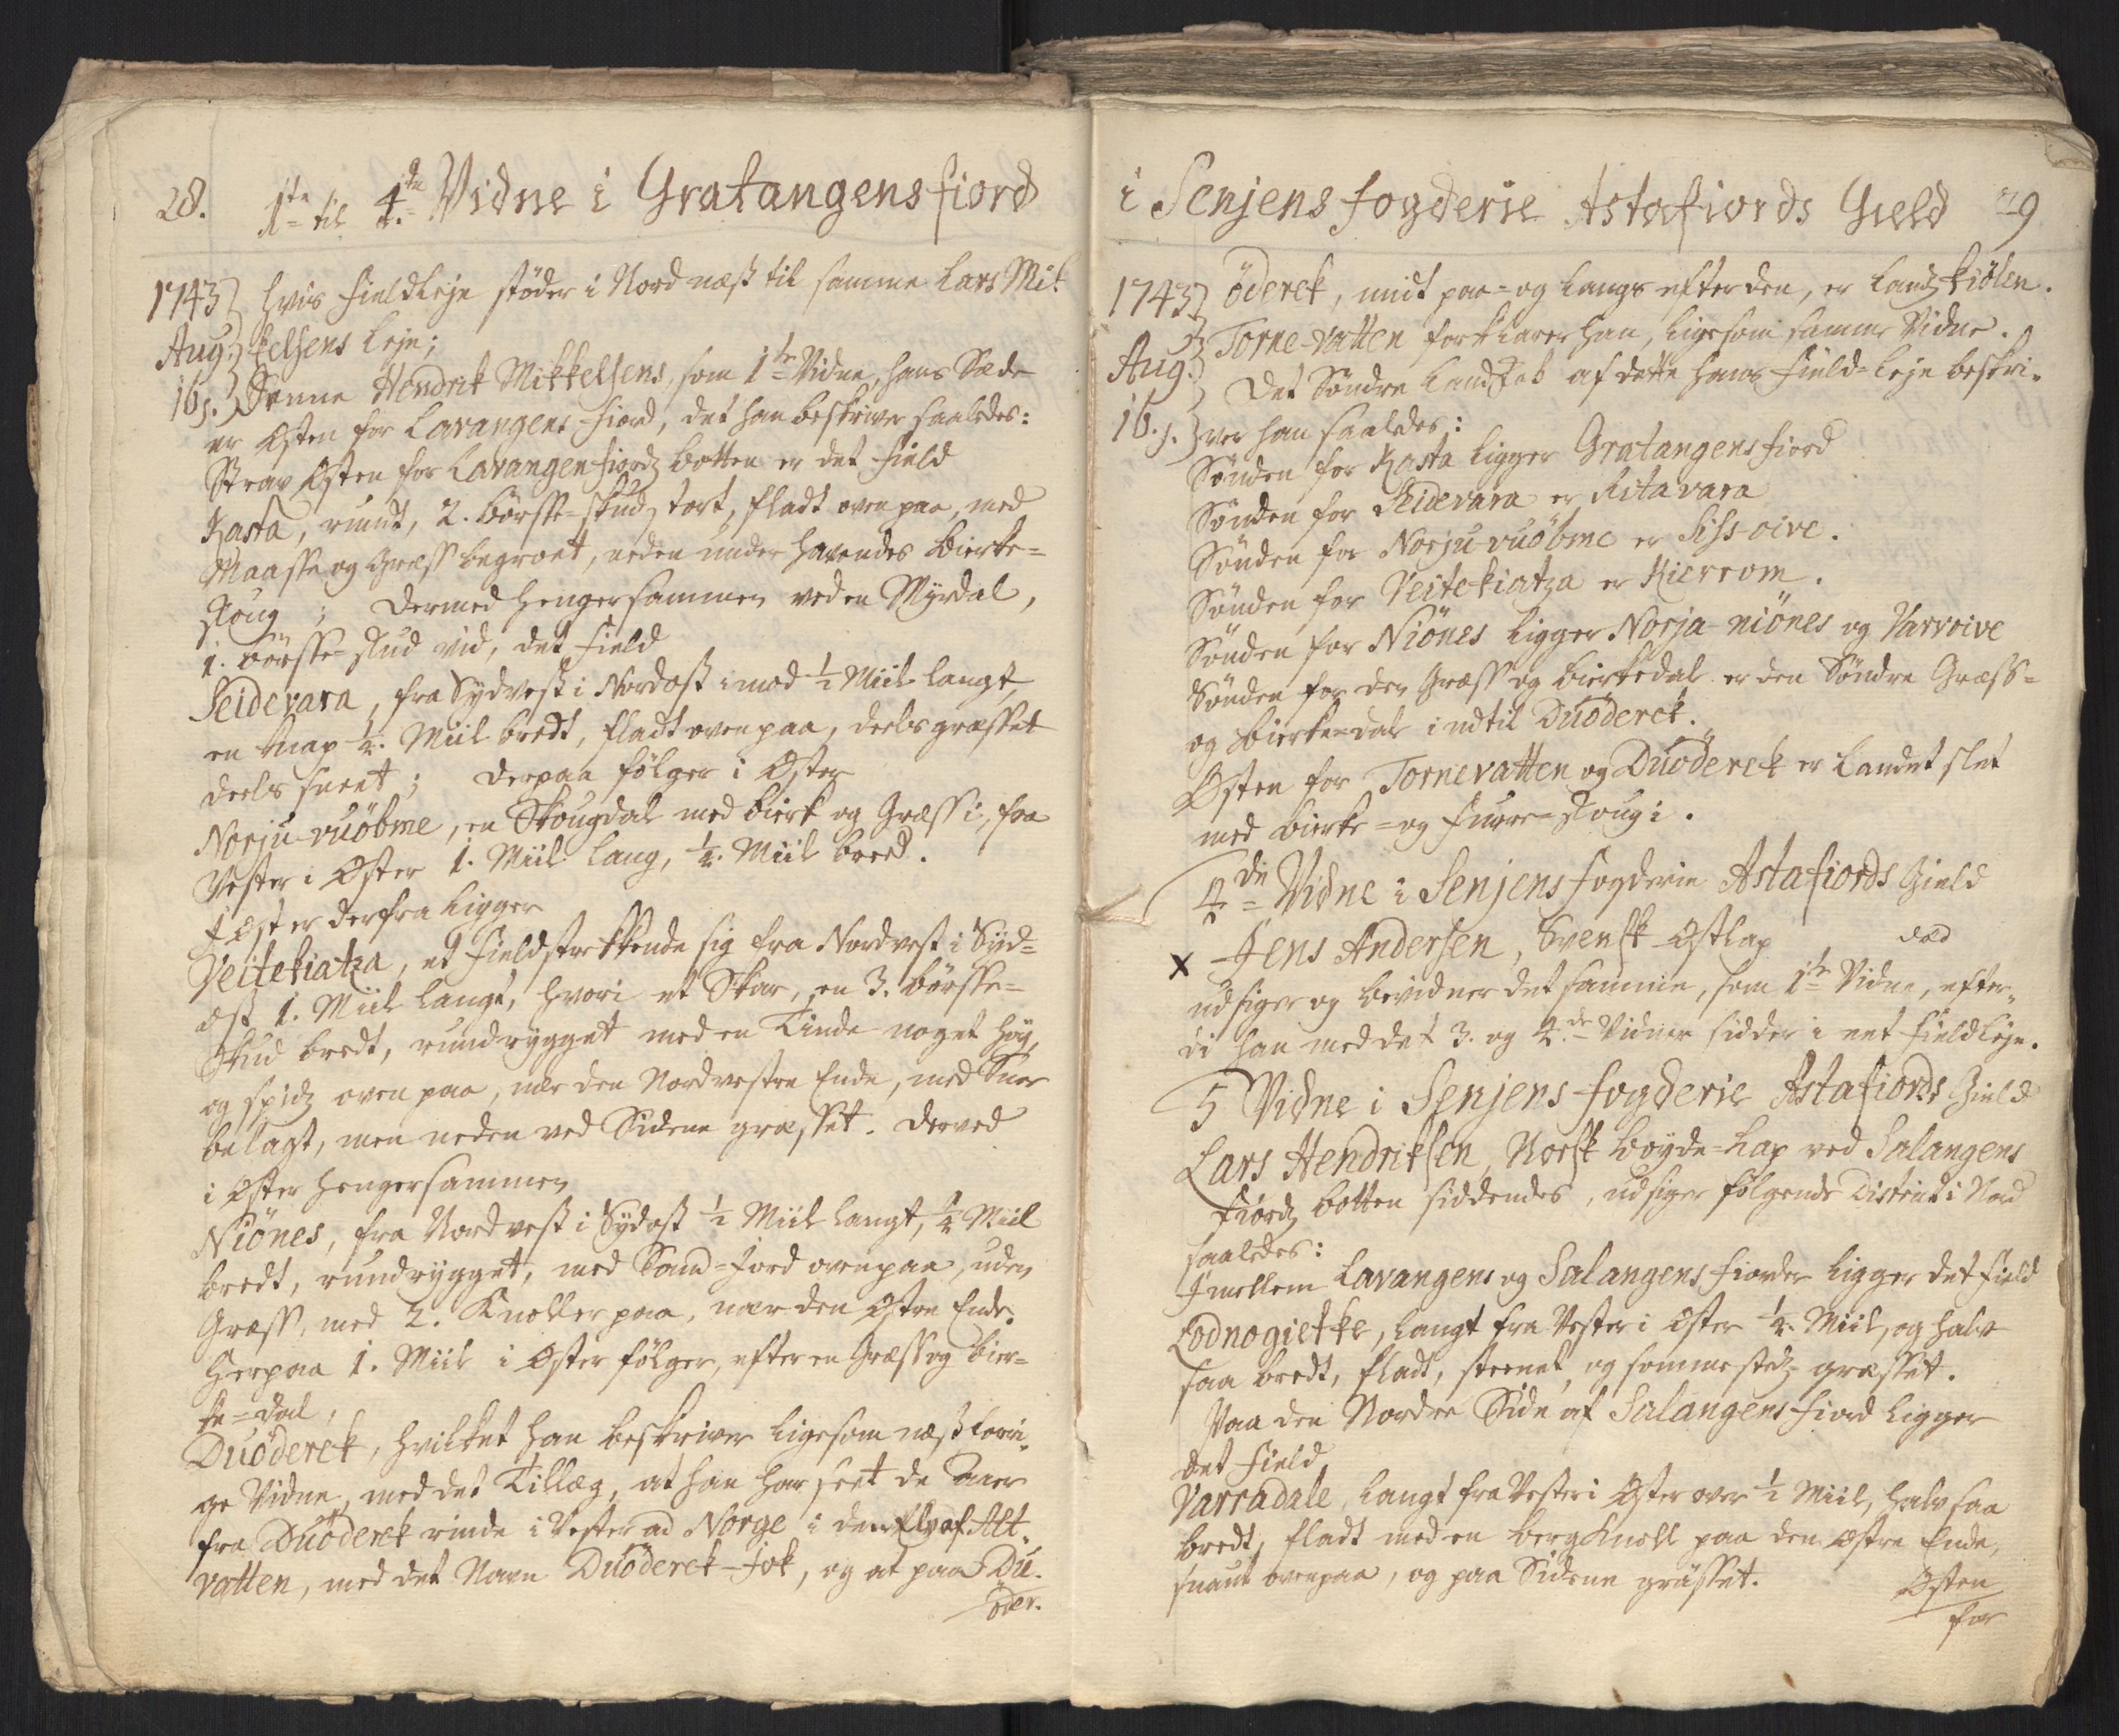 28. 1ste til 4de Vidne i Gratangens fiord
1743 hvis Fieldleje støder i Nord næst til samme Lars Mik
Aug: kelsens Leje;
16. Denne Hendrik Mikkelsens, som 1te Vidne, hans Sæde
er Østen for Lavangens Fiord, det han beskriver saaledes:
Strax Østen for Lavangen fiordz botten er det Field
Kasta, rundt, 2. börsse-skudz stort, fladt oven paa, med
Maasse og Græss begroet, neden under havendes Bierke=
skoug; Dermed hengersammen ved en Myrdal,
1. börsse-skud vid, det Field
Seidevara, fra Sydvest i Nordost imod ½ Miil langt,
en knap ¼. Miil bredt, fladt oven paa, deels græsset
deels sneet; Derpaa følger i Øster
Norju-vuöbme, en Skougdal med Bierk og Græss i, fra
Vester i Øster 1. Miil lang, ¼. Miil breed.
I Øster derfra ligger
Veitekiatza, et Field strekkende sig fra Nordvest i Syd=
ost 1. Miil langt, hvori et Skar, en 3. börsse=
skud bredt, rundrygget med en Tinde noget høy,
og spidz oven paa, nær den Nordvestre Ende, med Snee
belagt, men neden ved Sidene græsset. Derved
i Øster hengersammen
Niönes, fra Nordvest i Sydost ½ Miil langt, ¼ Miil
bredt, rundrygget, med Sand=Jord ovenpaa, uden
Græss, med 2. Knoller paa, nær den Østre Ende.
Herpaa 1. Miil i Øster følger, efter en Græss og Bier=
ke=dal,
Duöderek, hvilket han beskriver ligesom næst forri-
ge Vidne, med det Tillæg, at han har seet de Aaer
fra Duöderek rinde i Vester ad Norge i den Elv af Alt-
vatten, med det Navn Duöderek-Jok, og at paa Du-
öder.
i Senjens fogderie Astafiords Gield 29
1743 öderek, midt paa= og langs efter den, er Landz kiölen.
Aug: Torne-vatten forklarer han, ligesom samme Vidne.
16. Det Søndre Landskab af dette hans Field-Leje beskri-
ver han saaledes:
Sønden for Kasta ligger Gratangens fiord
Sønden for Seidevara er Ritavara
Sønden for Norju-vuöbme er Siss-oive.
Sønden for Veitekiatza er Kierrom.
Sønden for Niönes ligger Norja-niönes og Varvoive
Sønden for den Græss og Bierkedal er den Søndre Græss=
og Bierke=dal indtil Duöderek.
Østen for Tornevatten og Duöderek er Landet slet
med Bierke= og Furre=skoug i.
4de Vidne i Senjens fogderie Astafiords Gield
x Jens Andersen, Svensk Østlap, død
udsiger og bevidner det samme, som 1te Vidne, efter-
di han med det 3. og 4.de Vidner sidder i eet Fieldleje.
5 Vidne i Senjens fogderie Astafiords Gield
Lars Hendriksen, Norsk böyde=Lap ved Salangens
Fiordz botten siddendes, udsiger følgende District i Nord
saaledes:
Imellem Lavangens og Salangens fiorder ligger det Field
Lodnogiekke, langt fra Vester i Øster ¼. Miil, og halv
saa bredt, fladt, steenet, og sommestedz græsset.
Paa den Nordre Side af Salangens fiord ligger
det Field
Varradale, langt fra Vester i Øster over ½ Miil, halv saa
bredt, fladt med en berg Knoll paa den Østre Ende,
snaut ovenpaa, og paa Sidene grässet.
Østen
for